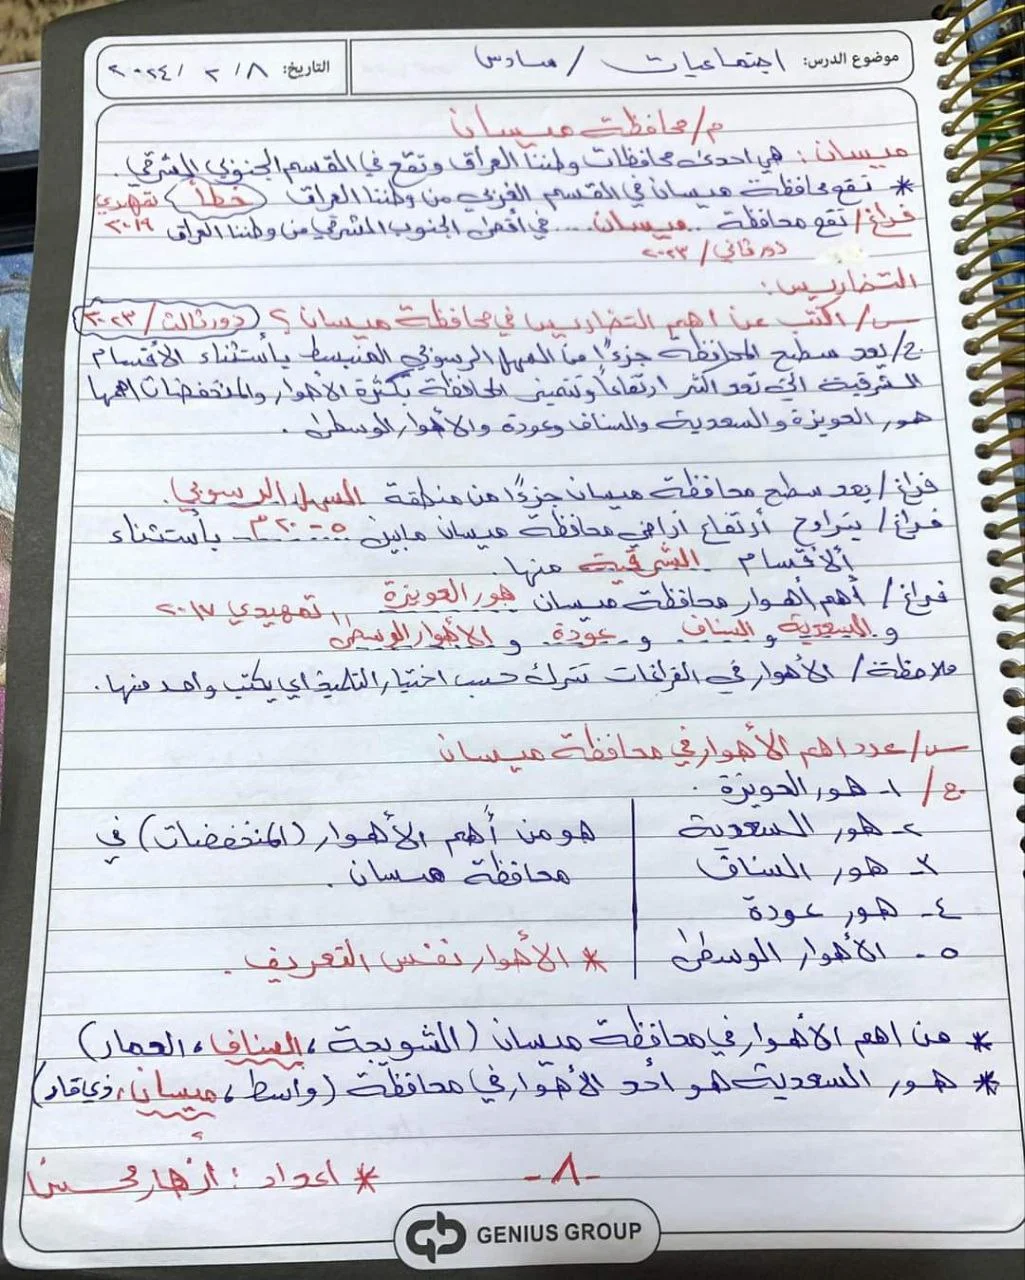 موضوع الدرس: اجتماعيات / سادس
التاريخ: ٨ / ٢ / ٢٠٢٤
م/ محافظة ميسان
ميسان : هي احدى محافظات وطننا العراق وتقع في القسم الجنوبي الشرقي .
* تقع محافظة ميسان في القسم الغربي من وطننا العراق (خطأ) تمهيدي ٢٠١٩
فراغ/ تقع محافظة .. ميسان .... في أقصى الجنوب الشرقي من وطننا العراق
دور ثاني / ٢٠٢٣
التضاريس:
س/ اكتب عن اهم التضاريس في محافظة ميسان ؟ (دور ثالث / ٢٠٢٣)
ج/ يعد سطح المحافظة جزءًا من السهل الرسوبي المنبسط بأستثناء الأقسام
الشرقية التي تعد اكثر ارتفاعاً وتتميز المحافظة بكثرة الأهوار والمنخفضات اهمها
هور الحويزة والسعدية والسناف وعودة والأهوار الوسطى .
فراغ/ يعد سطح محافظة ميسان جزءًا من منطقة السهل الرسوبي .
فراغ/ يتراوح أرتفاع اراضي محافظة ميسان مابين ٥ - ٢٠ م بأستثناء
ألأقسام الشرقية منها .
فراغ/ أهم أهوار محافظة ميسان هور الحويزة ,, تمهيدي ٢٠١٧
و السعدية و السناف و عودة و الأهوار الوسطى
ملاحظة/ الأهوار في الفراغات تترك حسب اختيار التلميذ اي يكتب واحد منها .
س/ عدد اهم الأهوار في محافظة ميسان
ج/ ١- هور الحويزة .
٢- هور السعدية
٣- هور السناف
٤- هور عودة
٥- الأهوار الوسطى
هو من أهم الأهوار (المنخفضات) في
محافظة ميسان .
* الأهوار نفس التعريف .
* من اهم الأهوار في محافظة ميسان (الشويجة ، السناف ، الحمار)
* هور السعدية هو أحد الأهوار في محافظة (واسط ، ميسان ، ذي قار)
* اعداد : أزهار محسن
-٨-
GENIUS GROUP